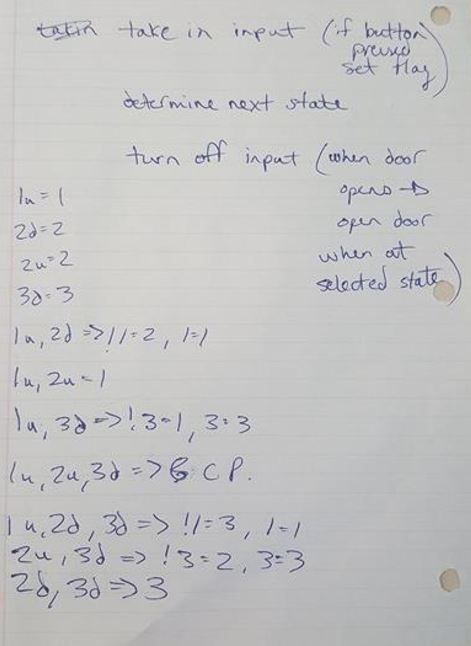 take in input (if button
pressed
set flag)
determine next state
turn off input (when door
opens →
open door
when at
selected state)
1u = 1
2d = 2
2u = 2
3d = 3
1u, 2d => !1 = 2, 1=1
1u, 2u = 1
1u, 3d => !3=1, 3=3
1u, 2u, 3d => C P.
1u, 2d, 3d => !1=3, 1=1
2u, 3d => !3=2, 3=3
2d, 3d => 3